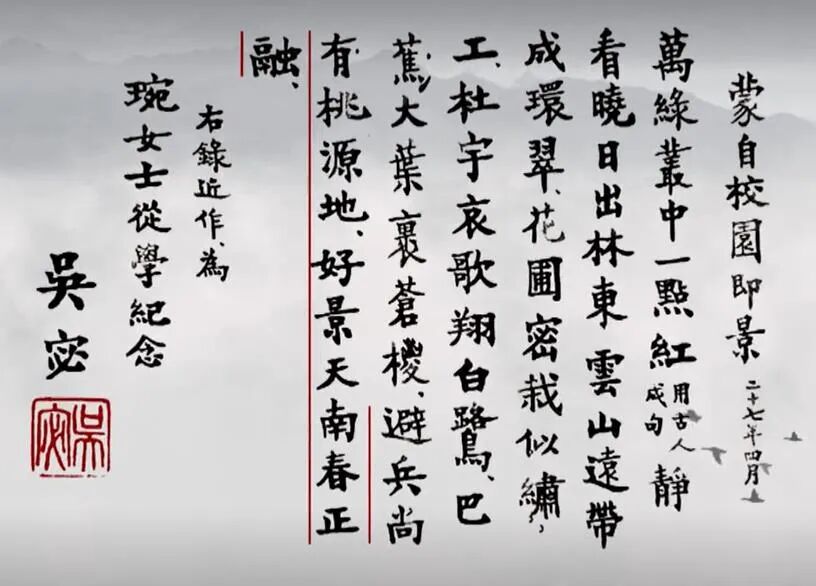 蒙自校園即景 二十七年四月
萬綠叢中一點紅 用古人成句 靜
看曉日出林東雲山遠帶
成環翠、花圃密栽似繡
工、杜宇哀歌翔白鷺、巴
蕉大葉裹蒼椶、避兵尚
有桃源地、好景天南春正
融、
右錄近作、為
琬女士從學紀念
吳宓
吳宓